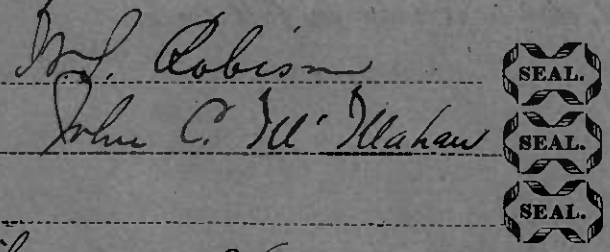 Robison SEAL.
John C. Mc Mahan SEAL.
SEAL.